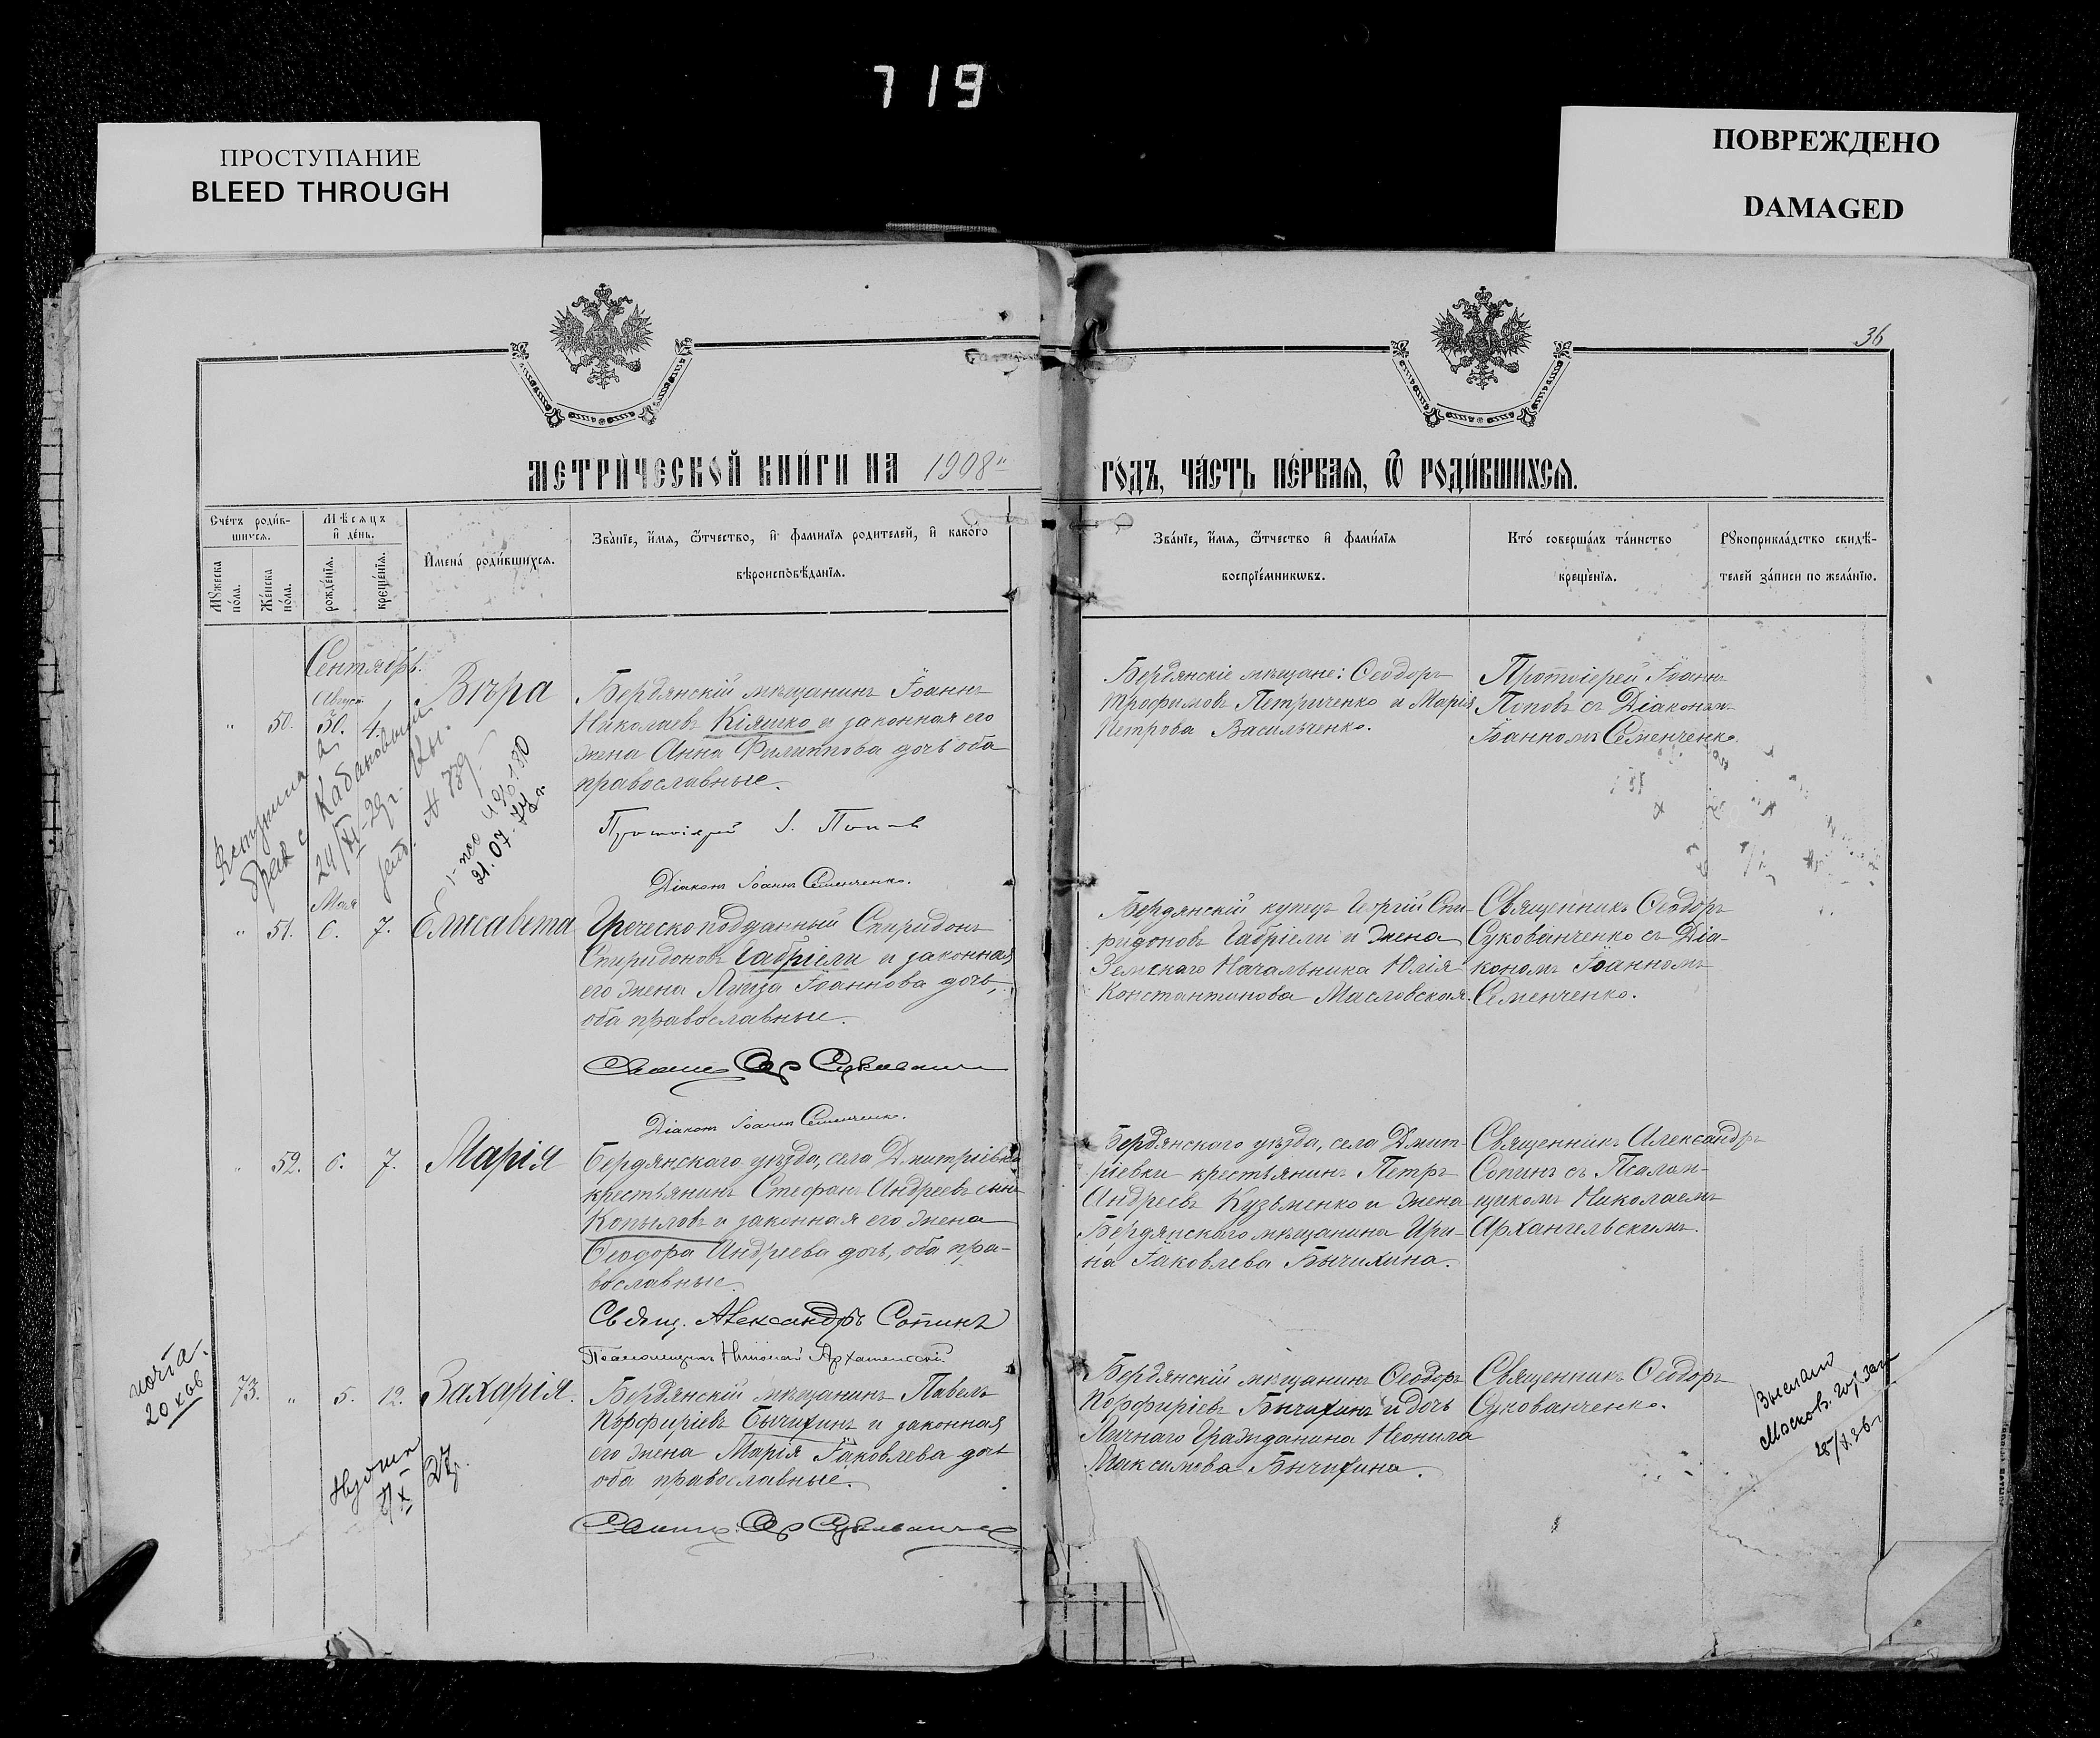 719
ПРОСТУПАНИЕ
BLEED THROUGH
ПОВРЕЖДЕНО
DAMAGED
36
МЕТРИ́ЧЕСКОЙ КНИ́ГИ НА 1908
ГО́ДЪ, ЧА́СТЬ ПЕ́РВАѦ, Ѿ РОДИ́ВШИХСѦ.
Сче́тъ роди́в-
шихся.
Мѣсяцъ
и де́нь.
Мꙋжеска
по́ла.
Же́нска
по́ла.
рожде́нїя.
креще́нїя.
Имена́ роди́вшихся.
Зва́нїе, и́мя, ѻ́тчество, и фами́лїя родителей, и како́го
вѣроисповѣ́данїя.
Зва́нїе, и́мя, ѻ́тчество и фами́лїя
воспрїе́мникѡвъ.
Кто́ соверша́лъ та́инство
креще́нїя.
Рꙋкоприкла́дство свидѣ-
телей за́писи по жела́нїю.
Сентябрь.
Август.
" 50. 30. 4. Вѣра
Бердянскій мѣщанинъ Іоаннъ
Николаевъ Кіяшко и законная его
жена Анна Филиппова дочь оба
православные.
Протоіерей І. Попов
Діаконъ Іоаннъ Семенченко.
Бердянскіе мѣщане: Ѳеодоръ
Трофимовъ Петриченко и Марія
Петрова Васильченко.
Протоіерей Іоаннъ
Поповъ съ Діакономъ
Іоанномъ Семенченко.
Вступила в
брак с Кабановым
24/XI-29г.
21.07.
" 51. 6. 7. Елисавета
Греческоподданный Спиридонъ
Спиридоновъ Габріели и законная
его жена Луиза Іоаннова дочь,
оба православные.
Діаконъ Іоаннъ Семенченко.
Бердянскій купецъ Георгій Спи-
ридоновъ Габріели и жена
Земскаго Начальника Юлія
Константинова Масловская.
Священникъ Ѳеодоръ
Сукованченко съ Діа-
кономъ Іоанномъ
Семенченко.
" 52. 6. 7. Марія
Бердянскаго уѣзда, села Дмитріевки
крестьянинъ Стефанъ Андреевъ сынъ
Копыловъ и законная его жена
Ѳеодора Андреева дочь, оба пра-
вославные.
Свящ. Александръ Сопинъ
Псаломщикъ Николай Архангельскій.
Бердянскаго уѣзда, села Дмит-
ріевки крестьянинъ Петръ
Андреевъ Кузьменко и жена
Бердянскаго мѣщанина Ири-
на Іаковлева Бычихина.
Священникъ Александръ
Сопинъ съ Псалом-
щикомъ Николаемъ
Архангельскимъ.
почта.
73. " 5. 12. Захарія.
Бердянскій мѣщанинъ Павелъ
Порфиріевъ Бычихинъ и законная
его жена Марія Іаковлева дочь
оба православные.
Бердянскій мѣщанинъ Ѳеодоръ
Порфиріевъ Бычихинъ и дочь
Личнаго Гражданина Неонила
Максимова Бычихина.
Священникъ Ѳеодоръ
Сукованченко.
Выслано